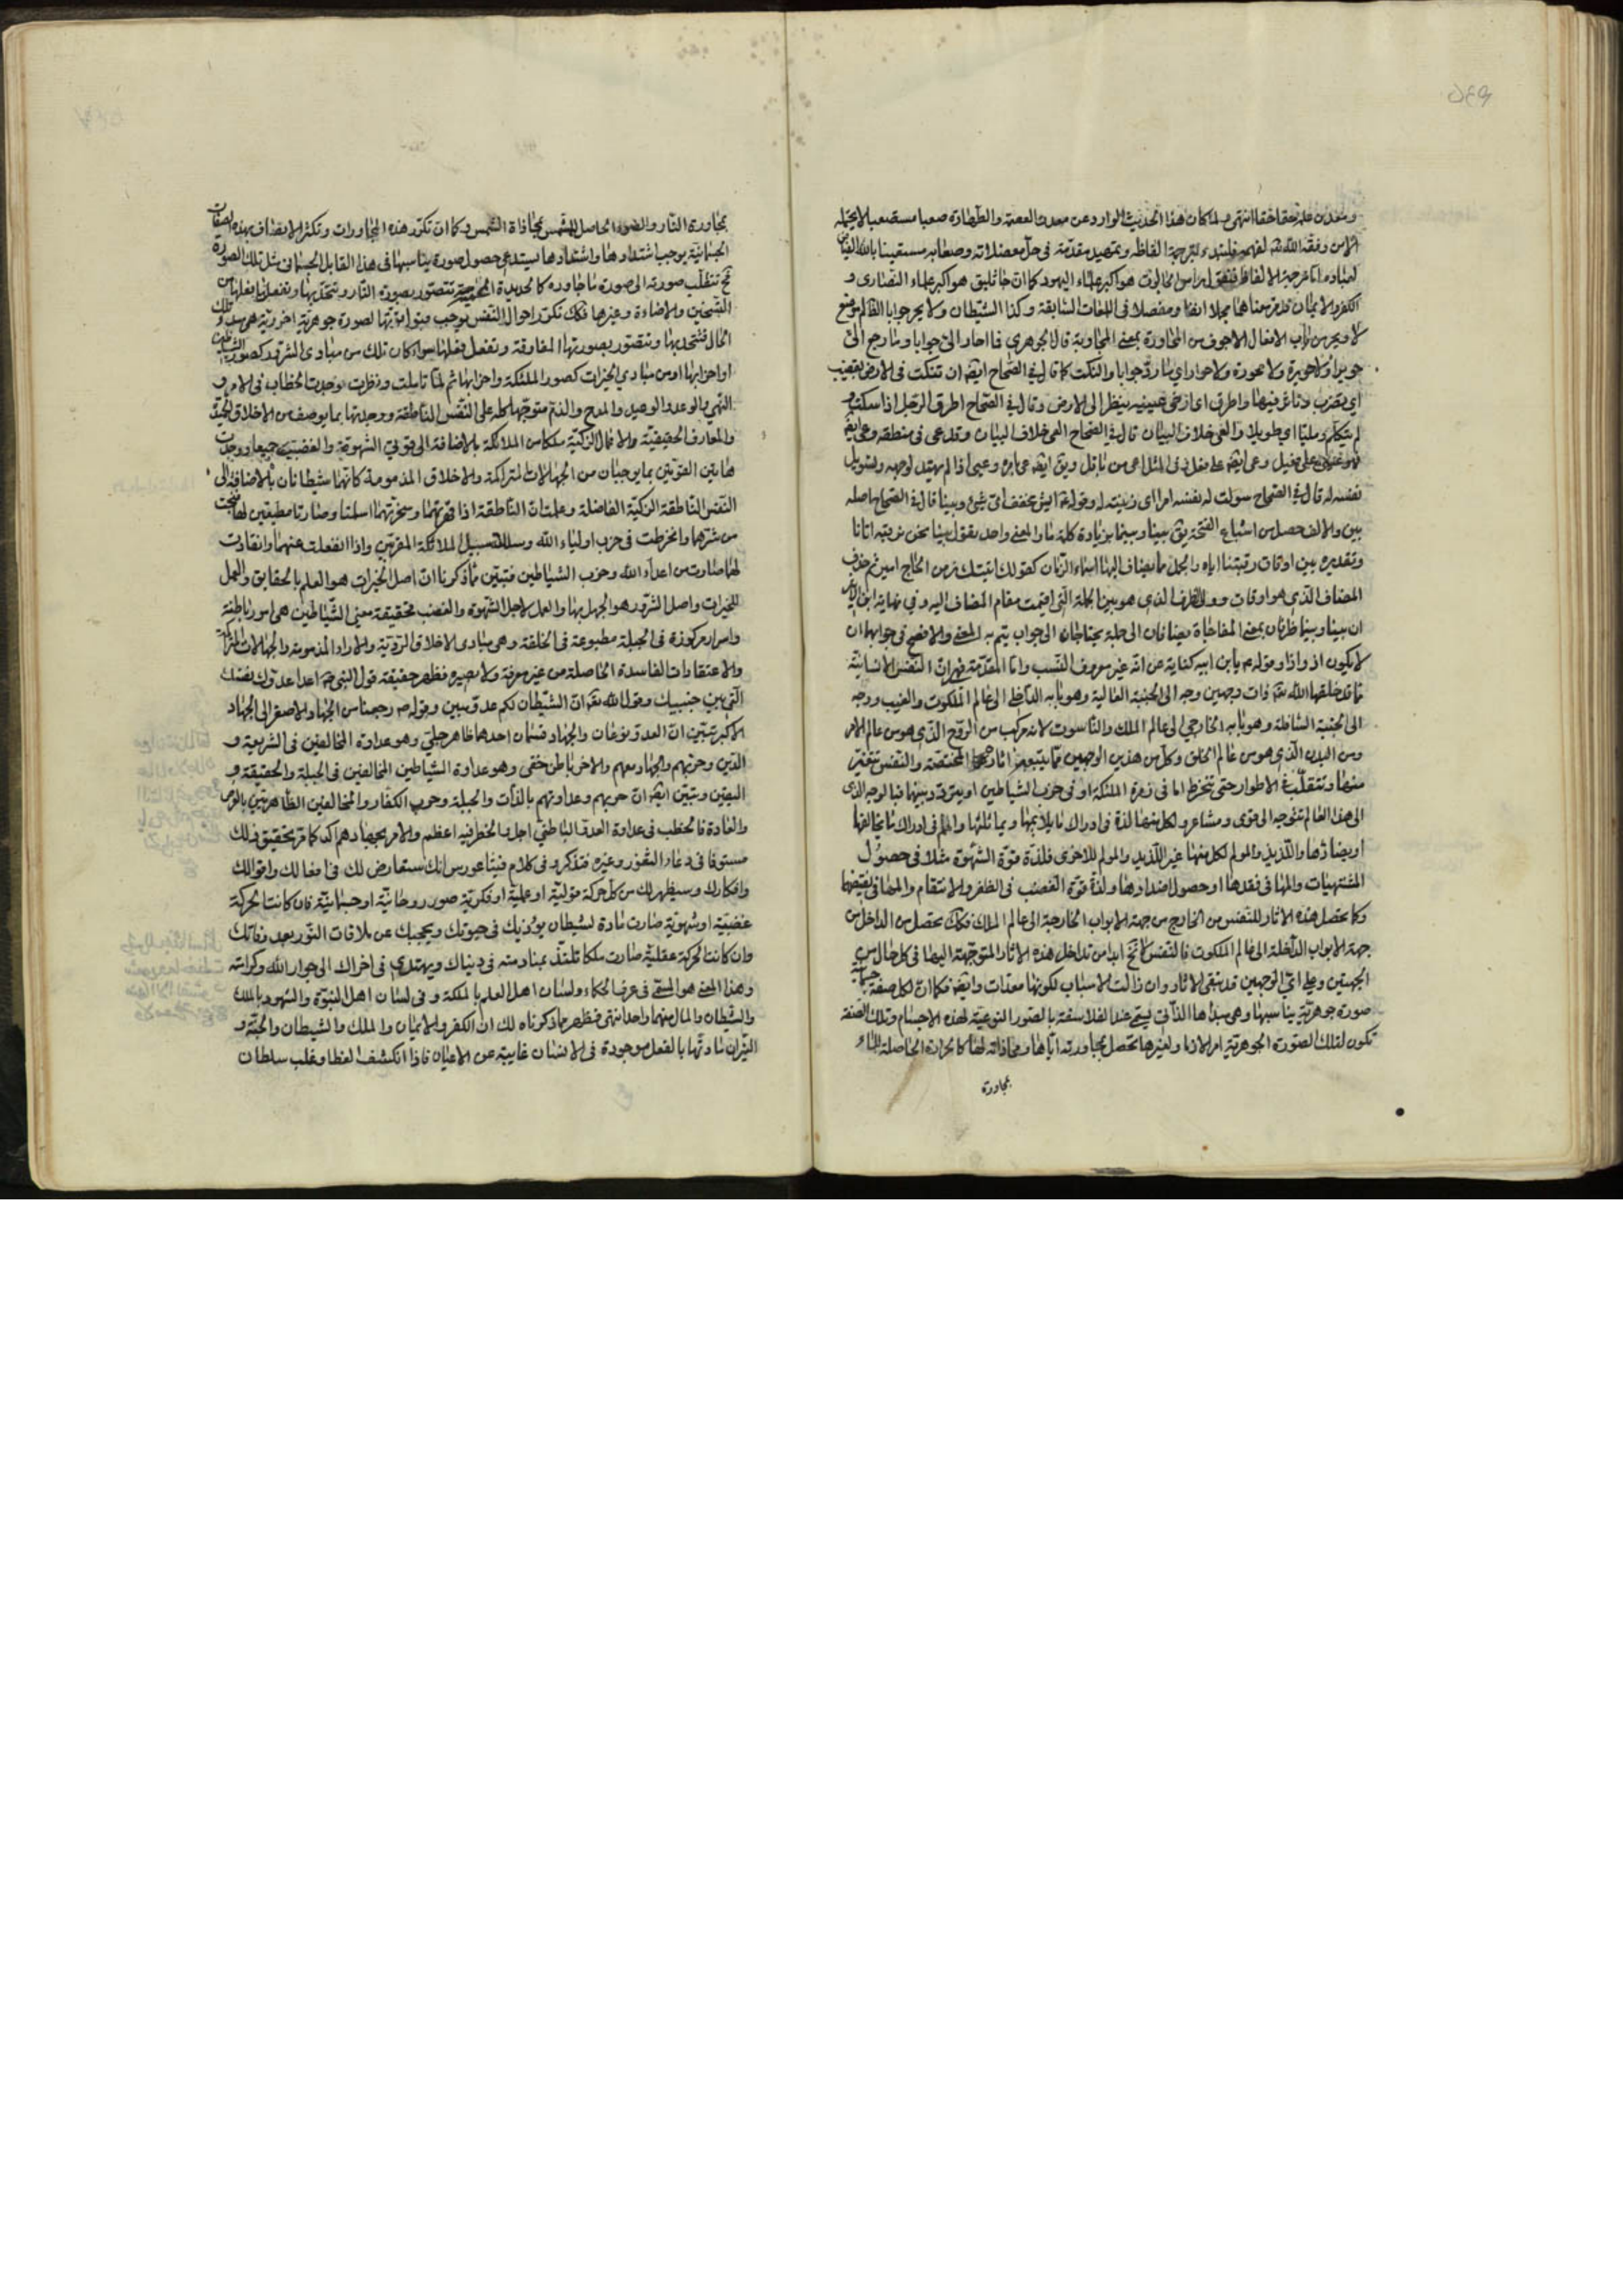 ومعدن علمه حقا حقا انتهى ولما كان هذا الحديث الوارد عن معدن العصمة والطهارة صعبا مستصعبا لا يحتمله
الا من وفقه الله لفهمه فلنبتدء لترجمة الفاظه وتمهيد مقدمة في حل معضلاته وصعابه مستعينا بالله
لعباده اما ترجمة الالفاظ فنقول راس الجالوت هو اكبر علماء اليهود كما ان جاثليق هو اكبر علماء النصارى و
الكفر والايمان قد مر معناهما مجملا انفا ومفصلا في اللغات السابقة وكذا الشيطان ولا يحر جوابا
لا ويحر من باب الافعال الاجوف من المحاورة بمعنى المجاوبة قال الجوهري فما احار الى جوابا وما رجع الى
حويرا ولا حويرة ولا محورة ولا حوارا اي ما رد جوابا والنكت كما قال في الصحاح ايضه ان تنكت في الارض بقضيب
اي يضرب لاثاثر فيها واطرق اي ارخى عينيه ينظر الى الارض وقال في الصحاح اطرق الرجل اذا سكت و
لم يتكلم ومليا اي طويلا والعي خلاف البيان قال في الصحاح العي خلاف البيان وقد عي في منطقه وعي ايضه
فهو عيي على فعيل وعي ايضه على فعل وفي المثل اعي من باقل ويق ايضه عي بامره وعيي اذا لم يهتد لوجهه وتسويل
نفسه له قال في الصحاح سولت له نفسه امرا اي زينته له وقوله ايش مخفف اي شئ وبينا قال في الصحاح اصله
بين والالف حصل من اشباع الفتحة يق بينا وبينما بزيادة كلمة ما والمعنى واحد يقول بينا نحن نرقبه اتانا
وتقديره بين اوقات رقبتنا اياه والجمل مما يضاف اليها اسماء الزمان كقولك اتيتك زمن الحجاج امير ثم حذف
المضاف الذي هو اوقات وولى الظرف الذي هو بين الجملة التي اقيمت مقام المضاف اليه وفي نهاية ابن الاثير
ان بينا وبينما ظرفان بمعنى المفاجاة مضافان الى جملة يحتاجان الى جواب يتم به المعنى والافصح في جوابهما ان
لا يكون اذ واذا وقوله يابن ابيه كناية عن انه غير معروف النسب واما المقدمة فهي ان النفس الانسانية
مما قد خلقها الله ذات وجهين وجه الى الجنبة العالية وهو بابه الداخلي الى عالم الملكوت والغيب ووجه
الى الجنبة السافلة وهو بابه الخارجي الى عالم الملك والناسوت لانه مركب من الروح الذي هو من عالم الامر
ومن البدن الذي هو من عالم الخلق وكل من هذين الوجهين مما يتبعه اثاره المختصة والنفس تتغير
منها وتتقلب في الاطوار حتى تنخرط اما في زمرة الملئكة او في حزب الشياطين او يفرق وبينهما فبالوجه الذي
الى هذا العالم تتوجه الى قوى ومشاعر ولكل منها لذة في ادراك ما يلايمها ويماثلها والم في ادراك ما يخالفها
او يضادها واللذيذ والمولم لكل منها غير اللذيذ والمولم للاخرى فلذة قوة الشهوة مثلا في حصول
المشتهيات والمها في فقدها او حصول اضدادها ولذة قوة الغضب في الظفر والانتقام والمها في نقيضها
وكما تحصل هذه الاثار للنفس من الخارج من جهة الابواب الخارجة الى عالم الملك فكك تحصل من الداخل من
جهة الابواب الداخلة الى عالم الملكوت فالنفس لا تخ ابدا من تداخل هذه الاثار المتوجهة اليها في كل حال من
الجهتين وعلى اي الوجهين قد يبقى الاثار وان زالت الاسباب لكونها معدات وايضه فكما ان لكل صفة جسمانية
صورة جوهرية يناسبها وهي مبدأها الذاتي يسمى عند الفلاسفة بالصور النوعية لهذه الاجسام وتلك الصفة
تكون لتلك الصورة الجوهرية امرا لازما ولغيرها تحصل بمجاورته اياها ومحاذاته لها كالحرارة الحاصلة للماء
بمجاورة
بمجاورة النار والضوء الحاصل للشمس بمحاذاة الشمس وكما ان تكرر هذه المجاورات وتكثر الاتصاف بهذه الصفات
الجسمانية يوجب اشتدادها واشتدادها يستدعي حصول صورة يناسبها في هذا القابل الجسماني مثل تلك الصورة
فح تنقلب صورته الى صورة ما جاوره كالحديدة المحمية تتصور بصورة النار وتتحد بها وتفعل فعلها من
التسخين والاضاءة وغيرها فكك تكرر احوال النفس يوجب قبول ذاتها لصورة جوهرية اخروية هي مبدء تلك
الحال فتتحد بها وتتصور بصورتها المفارقة وتفعل فعلها سواء كان ذلك من مبادي الشرور كصورة الشياطين
او احزابها او من مبادي الخيرات كصور الملئكة واحزابها ثم لما تاملت ونظرت لوجدت الخطاب في الامر و
النهي والوعد والوعيد والمدح والذم متوجها كله على النفس الناطقة ووجدتها بما يوصف من الاخلاق الحميدة
والمعارف الحقيقية والاعمال الزكية ملكا من الملائكة بالاضافة الى قوتي الشهوية والغضبية جميعا ووجدت
هاتين القوتين بما يوجبان من الجهالات المتراكمة والاخلاق المذمومة كانهما شيطانان بالاضافة الى
النفس الناطقة الزكية الفاضلة وعلمت ان الناطقة اذا قهرتهما وسخرتهما اسلمتا وصارتا مطيعتين لها نجت
من شرهما وانخرطت في حزب اولياء الله وسلك سبيل الملائكة المقربين واذا انفعلت عنهما وانقادت
لهما صارت من اعداء الله وحزب الشياطين فتبين مما ذكرنا ان اصل الخيرات هو العلم بالحقايق والعمل
للخيرات واصل الشرور هو الجهل بها والعمل لاجل الشهوة والغضب فحقيقة معنى الشياطين هي امور باطنة
واسرار مركوزة في الجبلة مطبوعة في الخلقة وهي مبادي الاخلاق الردية والاراء المذمومة والجهالات المتراكمة
والاعتقادات الفاسدة الحاصلة من غير معرفة ولا بصيرة فظهر حقيقة قول النبي ص اعدا عدوك نفسك
التي بين جنبيك وقول الله تعه ان الشيطان لكم عدو مبين وقوله ص رجعنا من الجهاد الاصغر الى الجهاد
الاكبر تبين ان العدو نوعان والجهاد قسمان احدهما ظاهر جلي وهو عداوة المخالفين في الشريعة و
الدين وحزبهم والجهاد معهم والاخر باطن خفي وهو عداوة الشياطين المخالفين في الجبلة والحقيقة و
اليقين وتبين ايضه ان حربهم وعداوتهم بالذات والجبلة وحرب الكفار والمخالفين الظاهريين بالعرض
والعادة فالخطب في عداوة العدو الباطني اجل والخطر فيه اعظم والامر بجهادهم اكد كما مر تحقيق ذلك
مستوفا في دعاء الثغور وغيره فتذكر وفي كلام فيثاغورس انك ستعارض لك في افعالك واقوالك
وافكارك وسيظهر لك من كل حركة قولية او عملية او فكرية صور روحانية او جسمانية فان كانت الحركة
غضبية او شهوية صارت مادة لشيطان يوذيك في حيوتك ويحجبك عن ملاقات النور بعد وفاتك
وان كانت الحركة عقلية صارت ملكا تلتذ بمنادمته في دنياك ويهتدي في اخراك الى جوار الله وكرامته
وهذا المعنى هو المسمى في عرف الحكماء ولسان اهل العلم بالملكة وفي لسان اهل النبوة والشهود بالملك
والشيطان والمآل منهما واحد انتهى فظهر مما ذكرناه لك ان الكفر والايمان والملك والشيطان والجنة و
النيران مادتها بالفعل موجودة في الانسان غايبة عن الاعيان فاذا انكشف الغطا وغلب سلطان